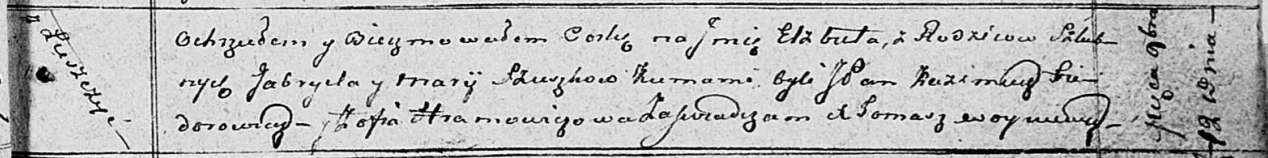 Ochrzciłem y Bierzmowałem Corkę na Jmię Elżbieta, z Rodzicow Szlub-
nych Gabryela y Maryi Szuszkow Kumami byli JPan Kazimierz Fie-
dorowicz - Zofia Hramowiczowa Zaświadczam X Tomasz
Mjca 9bra
12 Dnia